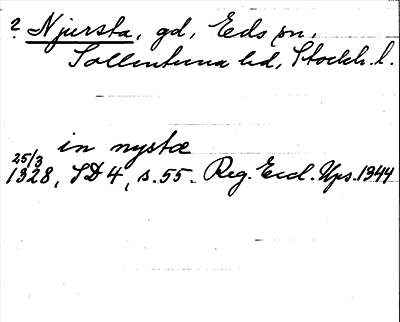 2 Njursta, gd, Eds sn,
Sollentuna hd, Stockh. l.
in nystæ
25/3 1328, SD 4, s. 55. Reg. Eccl. Ups. 1344